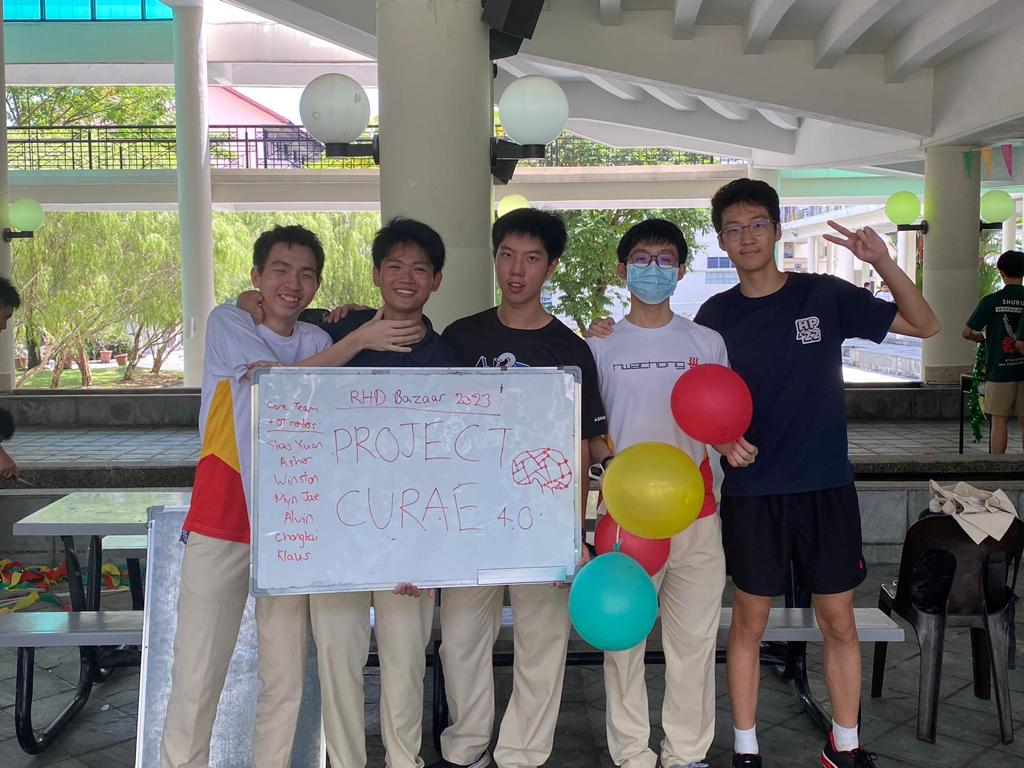 RHD Bazaar 2023
Core Team
Shao Yuan
Asher
Winston
Myn Jae
Alvin
Chongkai
Klaus
PROJECT
CURAE 4.0
hwachong
HP
'22
SHURU